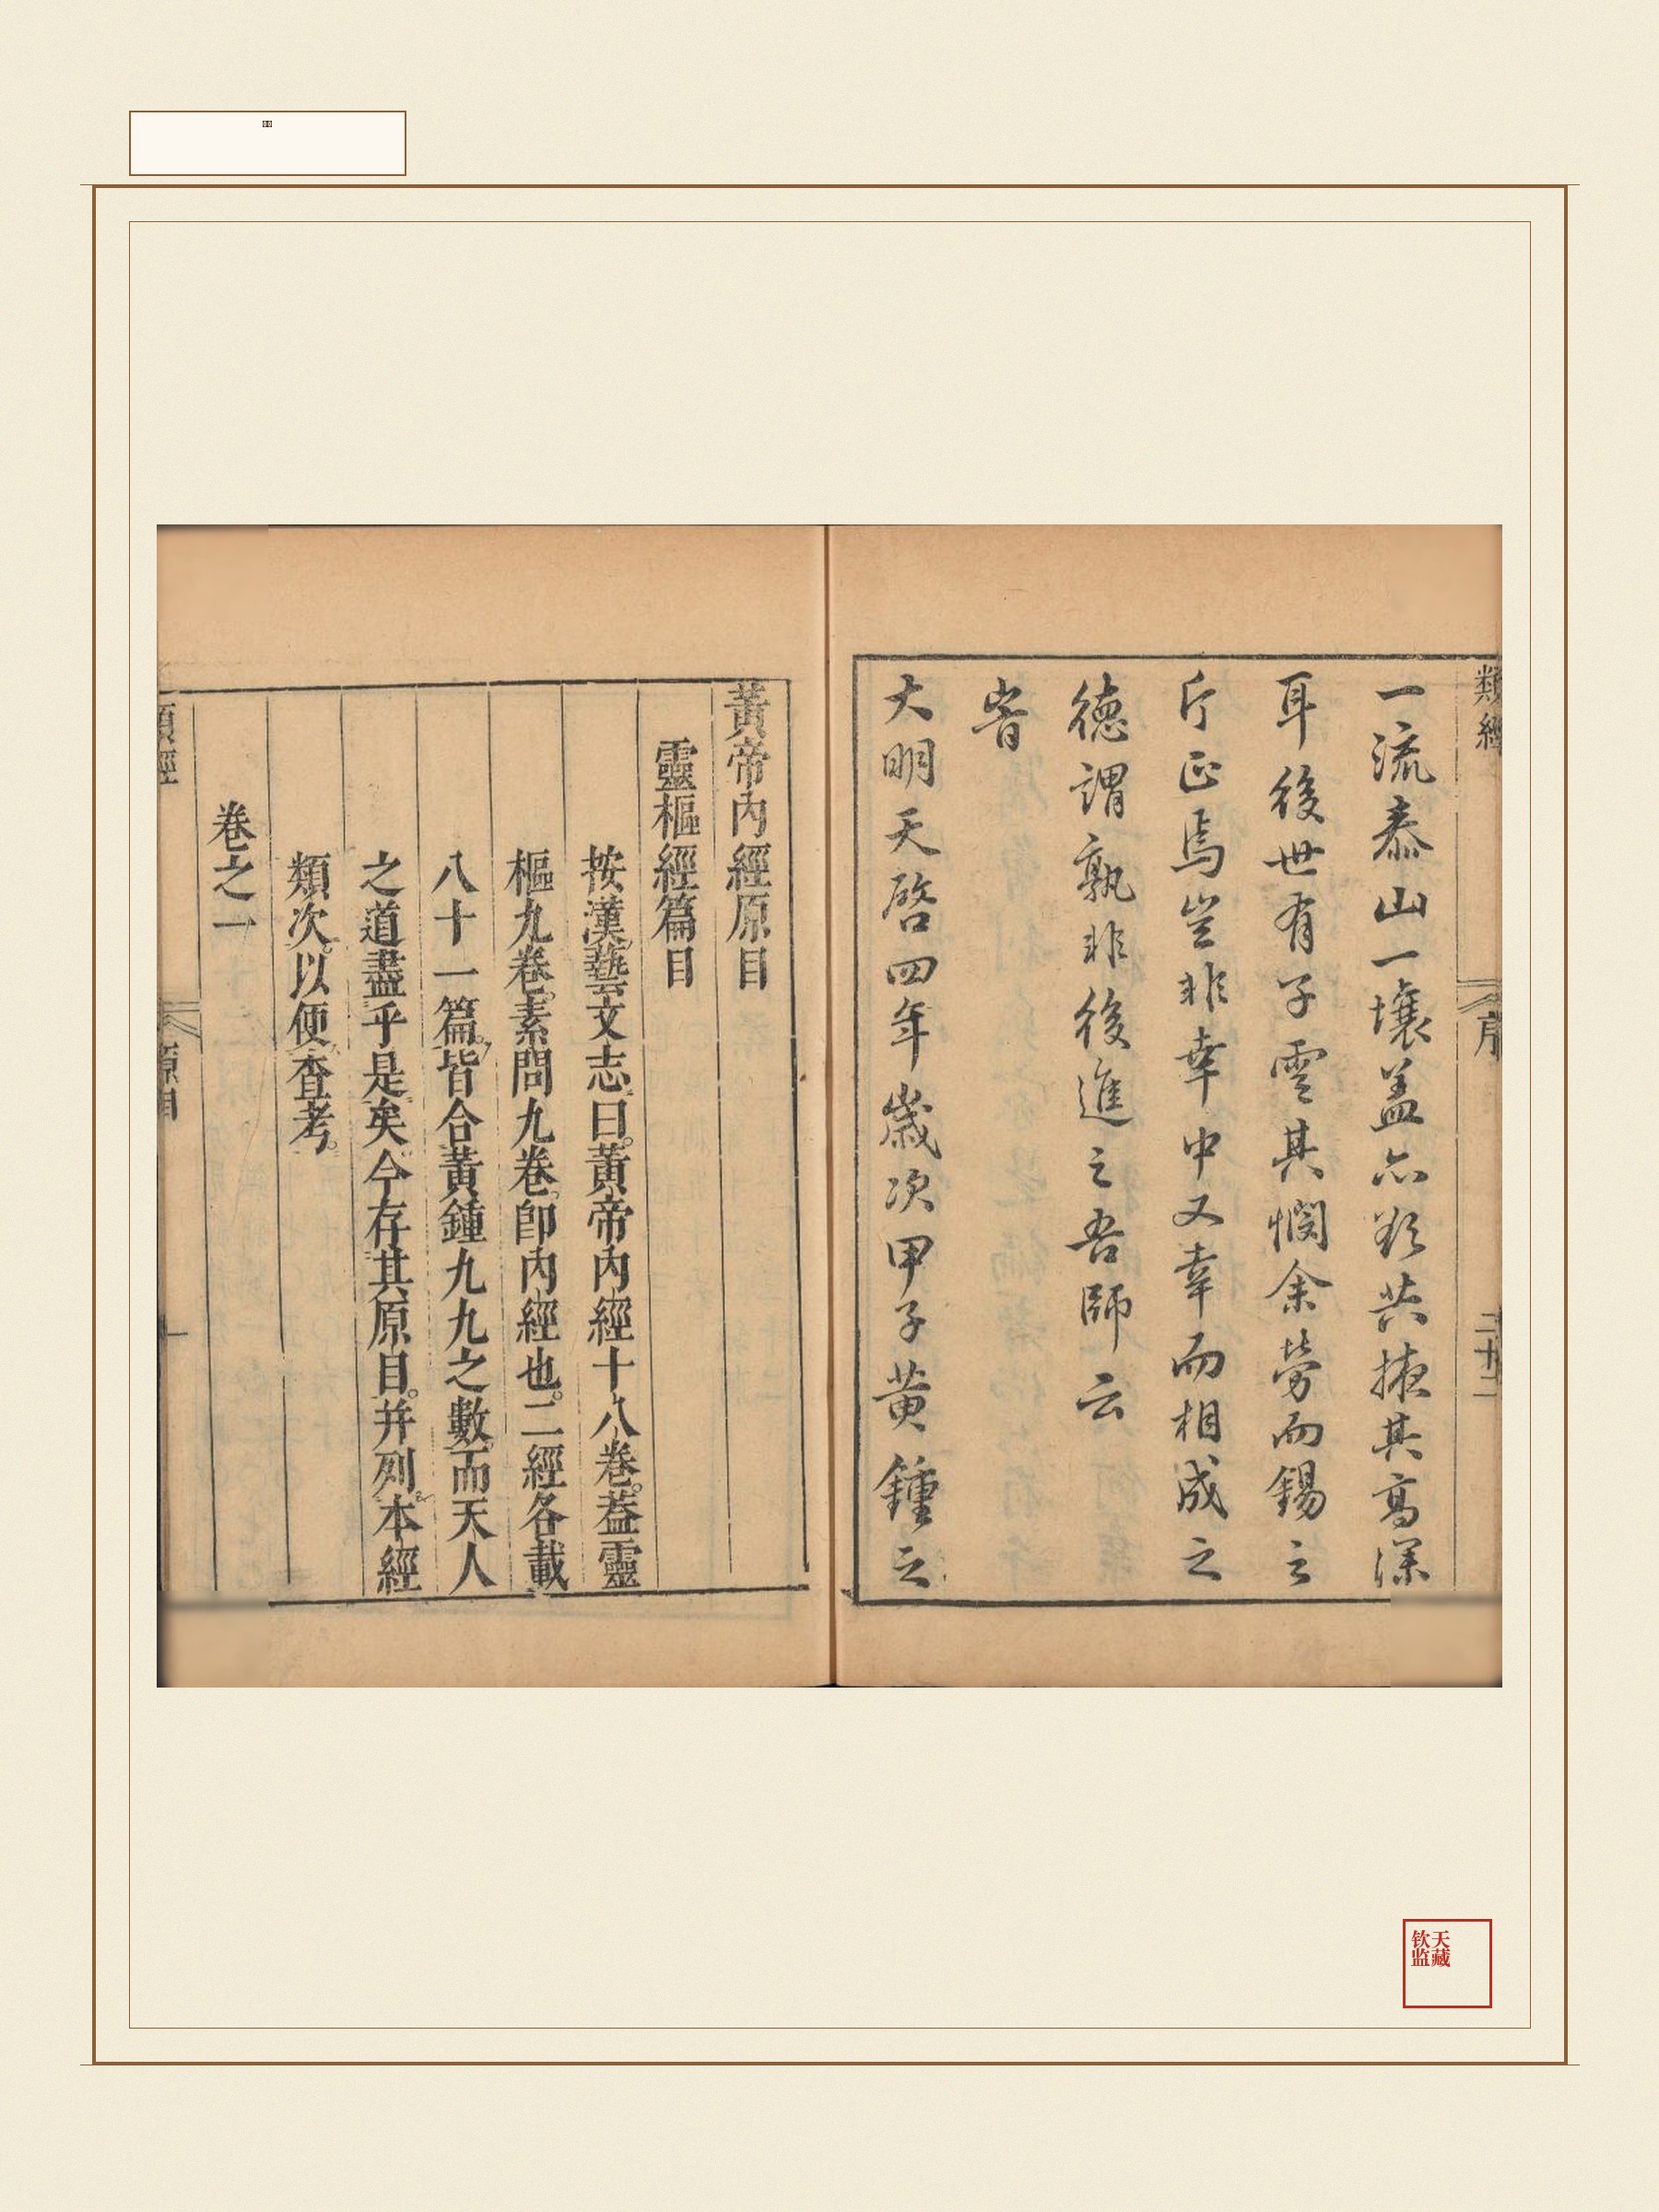 類經
序
二十二
一流泰山一壤盖亦欲共掖其高深
耳後世有子雲其憫余勞而錫之
斤正焉豈非幸中又幸而相成之
德謂孰非後進之吾師云
峕
大明天啓四年歲次甲子黄鍾之
黃帝內經原目
靈樞經篇目
按漢藝文志曰。黃帝內經十八卷。葢靈
樞九卷。素問九卷。卽內經也。二經各載
八十一篇。皆合黃鍾九九之數。而天人
之道盡乎是矣。今存其原目。并列本經
類次。以便查考。
卷之一
類經
原目
一
钦天
监藏